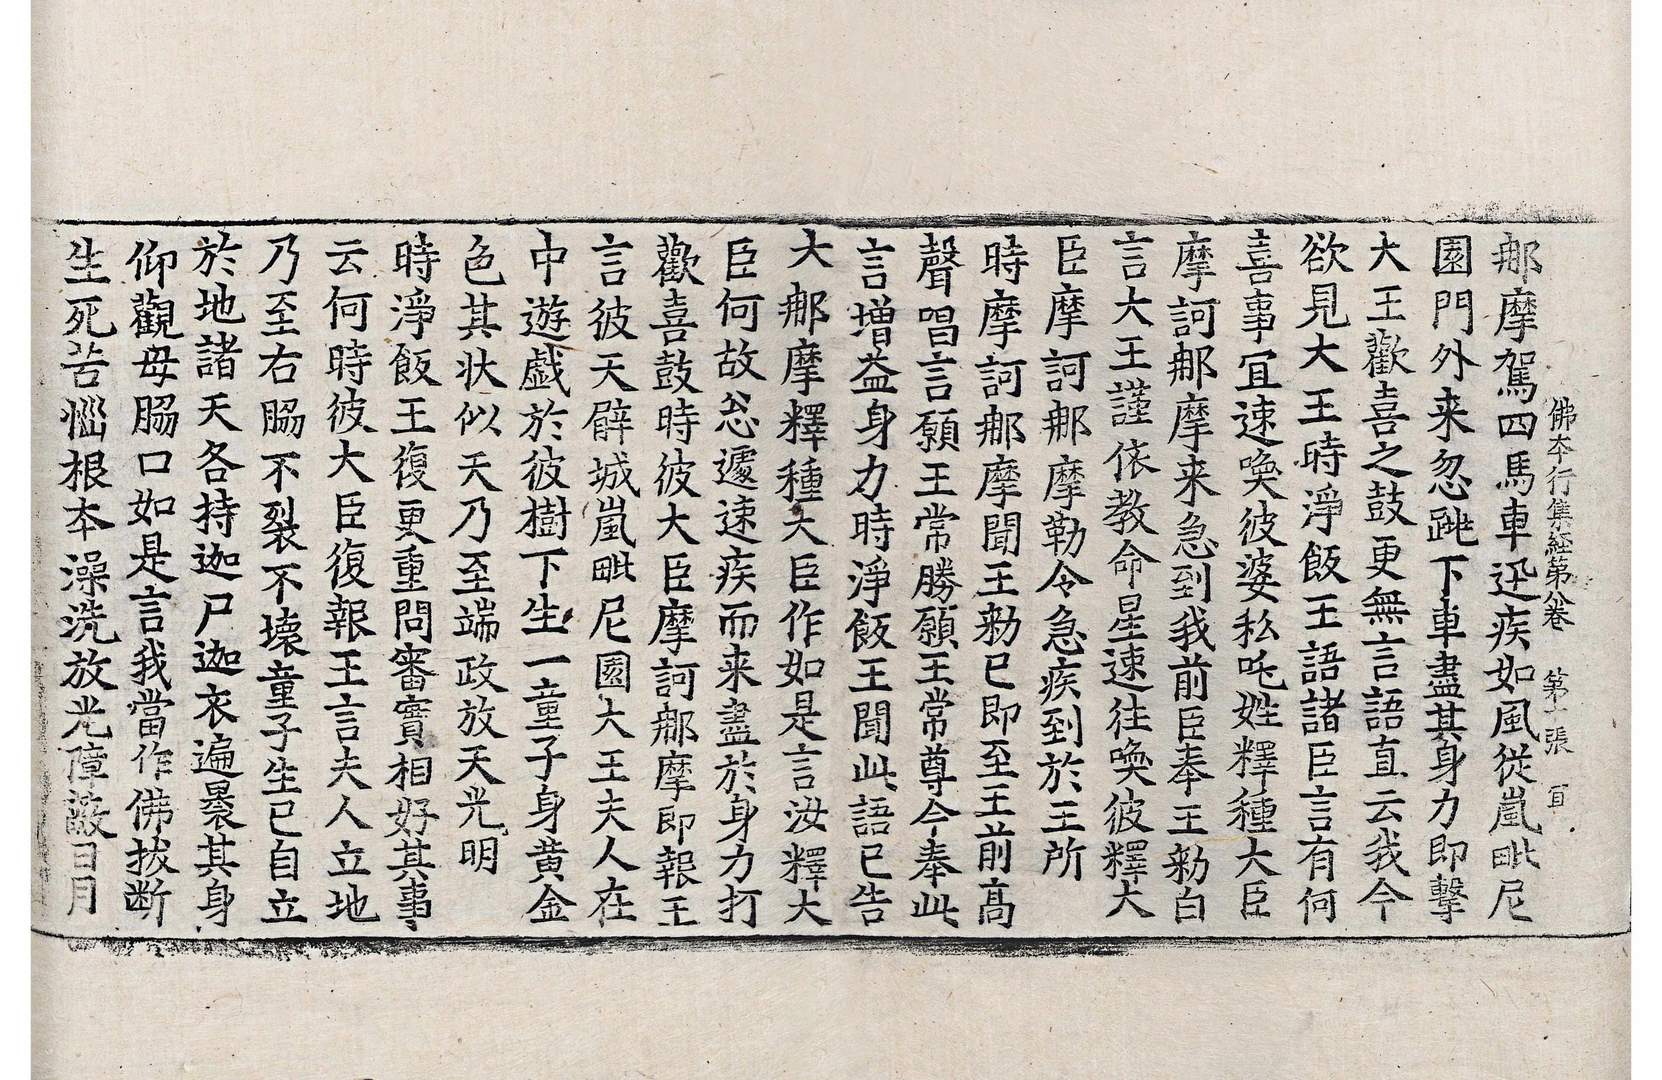 佛本行集経第八巻 第十張 賔
𨙻摩駕四馬車迅疾如風從嵐毗尼
園門外来忽跳下車盡其身力即擊
大王歡喜之鼓更無言語直云我今
欲見大王時淨飯王語諸臣言有何
喜事宜速喚彼婆私吒姓釋種大臣
摩訶𨙻摩来急到我前臣奉王勑白
言大王謹依教命星速往喚彼釋大
臣摩訶𨙻摩勒令急疾到於王所
時摩訶𨙻摩聞王勑已即至王前高
聲唱言願王常勝願王常尊今奉此
言增益身力時淨飯王聞此語已告
大𨙻摩釋種大臣作如是言汝釋大
臣何故忩遽速疾而来盡於身力打
歡喜鼓時彼大臣摩訶𨙻摩即報王
言彼天臂城嵐毗尼園大王夫人在
中遊戲於彼樹下生一童子身黄金
色其状似天乃至端政放天光明
時淨飯王復更重問審實相好其事
云何時彼大臣復報王言夫人立地
乃至右脇不裂不壞童子生已自立
於地諸天各持迦尸迦衣遍褁其身
仰觀母脇口如是言我當作佛拔断
生死苦惱根本澡洗放光障蔽日月